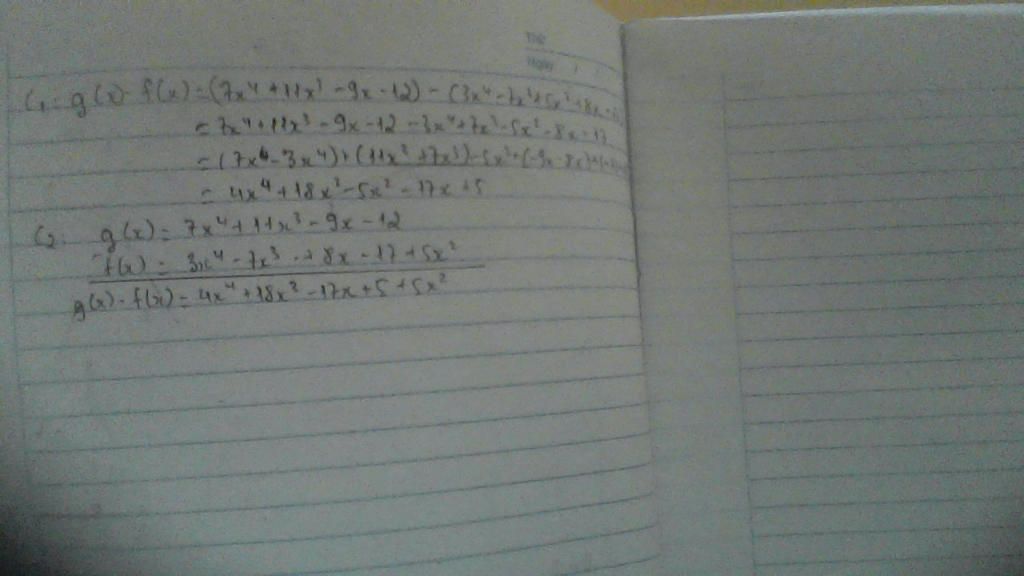 Thứ
Ngày / /
C₁: g(x) - f(x) = (7x⁴ + 11x³ - 9x - 12) - (3x⁴ - 7x³ + 5x² + 8x
= 7x⁴ + 11x³ - 9x - 12 - 3x⁴ + 7x³ - 5x² - 8x
= (7x⁴ - 3x⁴) + (11x³ + 7x³) - 5x² + (-9x - 8x)
= 4x⁴ + 18x³ - 5x² - 17x + 5
C₂: g(x) = 7x⁴ + 11x³ - 9x - 12
- f(x) = 3x⁴ - 7x³ + 8x - 17 + 5x²
g(x) - f(x) = 4x⁴ + 18x³ - 17x + 5 + 5x²